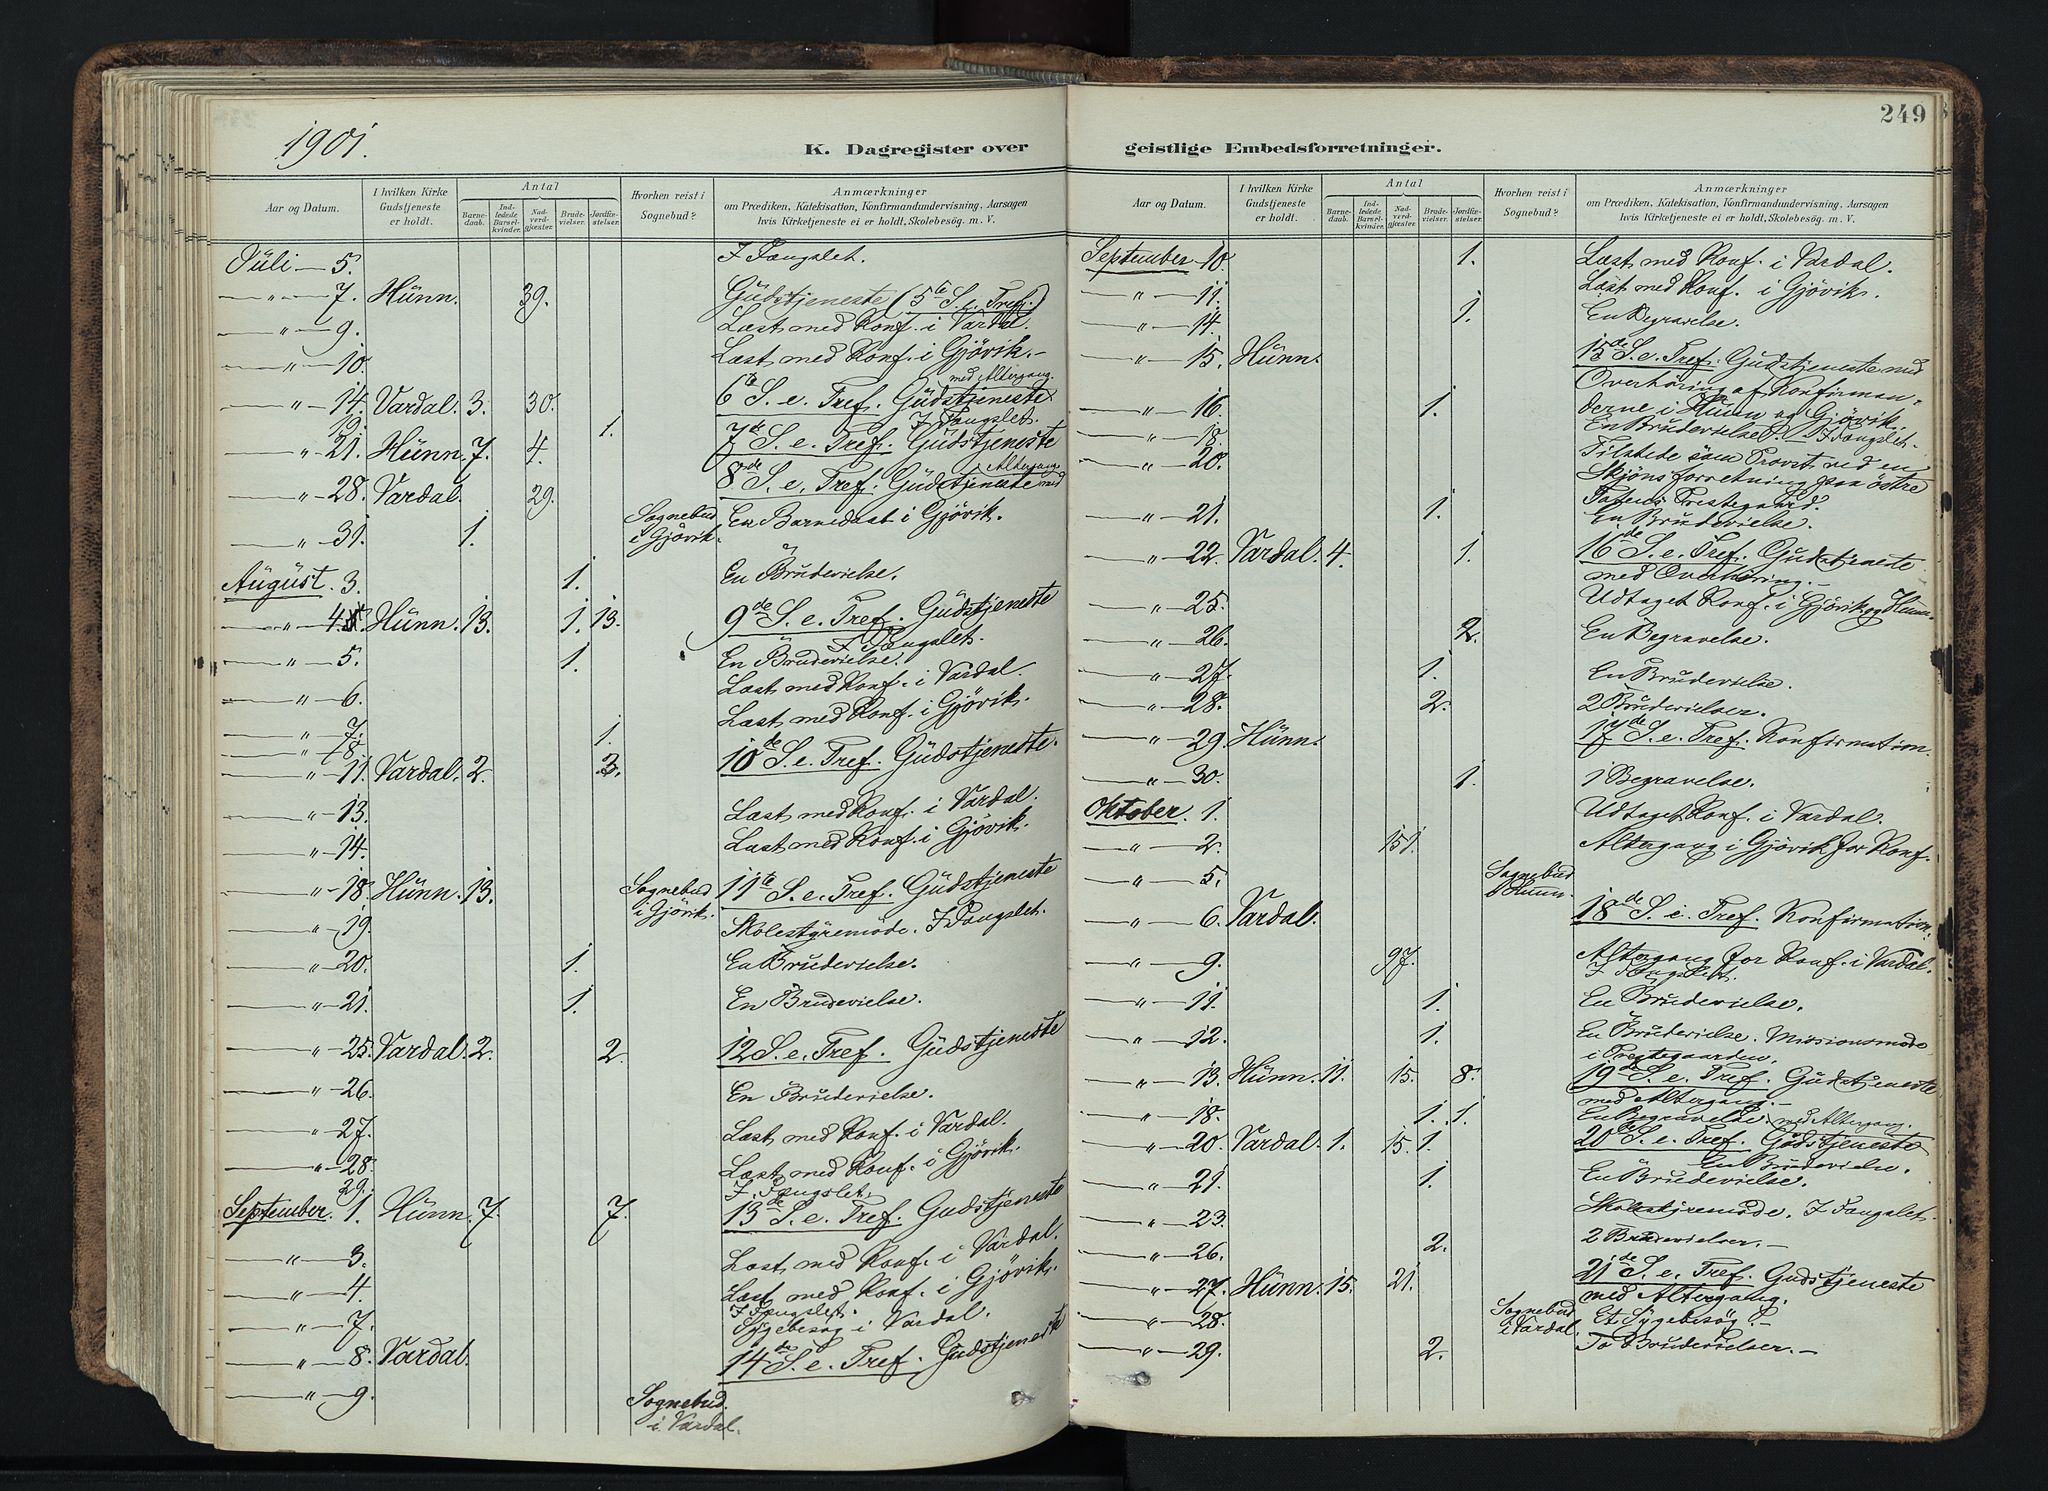 1901.
K. Dagregister over
Aar og Datum.
I hvilken Kirke Gudstjeneste er holdt.
Antal
Barnedaab.
Indledede Barselkvinder.
Nadverdgjæster.
Brudevielser.
Jordfæstelser.
Hvorhen reist i Sognebud?
Anmærkninger
om Prædiken, Katekisation, Konfirmandundervisning, Aarsagen
hvis Kirketjeneste ei er holdt, Skolebesøg. m. V.
Juli — 5. I Fangslet.
" — 7. Hunn. 39. Gudstjeneste (5te S. e. Tref.)
" — 9. Læst med Konf. i Vardal.
" — 10. Læst med Konf. i Gjövik. —
med Altergang.
" — 14. Vardal. 3. 30. 6te S. e. Tref. Gudstjeneste
19. 1. I Fangslet.
" — 21. Hunn. 7. 4. 7de S. e. Tref. Gudstjeneste
Altergang
" — 28. Vardal. 29. 8de S. e. Tref. Gudstjeneste med
" — 31. 1. Sognebud i Gjövik. En Barnedaab i Gjövik.
August. 3. 1. En Brudevielse.
" — 4. Hunn. 13. 1. 13. 9de S. e. Tref. Gudstjeneste
I Fangslet.
" — 5. 1. En Brudevielse.
" — 6. Læst med Konf. i Vardal.
" — 7. Læst med Konf. i Gjövik.
" — 8. 1.
" — 11. Vardal. 2. 3. 10de S. e. Tref. Gudstjeneste.
" — 13. Læst med Konf. i Vardal.
" — 14. Læst med Konf. i Gjövik.
" — 18. Hunn. 13. Sognebud i Gjövik. 11te S. e. Tref. Gudstjeneste
" — 19. Skolestyremöde. I Fangslet.
" — 20. 1. En Brudevielse.
" — 21. 1. En Brudevielse.
" — 25. Vardal. 2. 2. 12 S. e. Tref. Gudstjeneste
" — 26. En Brudevielse.
" — 27. Læst med Konf. i Vardal.
" — 28. Læst med Konf. i Gjövik.
29. I Fangslet.
September. 1. Hunn. 7. 7. 13de S. e. Tref. Gudstjeneste
" — 3. Læst med Konf. i Vardal.
" — 4. Læst med Konf. i Gjövik.
I Fangslet.
" — 7. Sygebesög i Vardal.
" — 8. Vardal. 14de S. e. Tref. Gudstjeneste
" — 9. Sognebud. i Vardal.
249
geistlige Embedsforretninger.
Aar og Datum.
I hvilken Kirke Gudstjeneste er holdt.
Antal
Barnedaab.
Indledede Barselkvinder.
Nadverdgjæster.
Brudevielser.
Jordfæstelser.
Hvorhen reist i Sognebud?
Anmærkninger
om Prædiken, Katekisation, Konfirmandundervisning, Aarsagen
hvis Kirketjeneste ei er holdt, Skolebesøg. m. V.
September — 10. 1. Læst med Konf. i Vardal.
" — 11. Läst med Konf. i Gjövik.
" — 14. 1. En Begravelse.
" — 15. Hunn. 15de S. e. Tref. Gudstjeneste med
Overhöring af Konfirman-
" — 16. 1. derne i Hunn og Gjövik.
" — 18. En Brudevielse. I Fangslet.
" — 20. Tilstede som Provst ved en
Skjönsforretning paa östre
Totens Prestegaard.
" — 21. 1. En Brudevielse.
" — 22. Vardal. 4. 1. 16de S. e. Tref. Gudstjeneste
med Overhöring. —
" — 25. Udtaget Konf. i Gjövik og Hunn.
" — 26. 2. En Begravelse.
" — 27. 1. En Brudevielse.
" — 28. 2. 2 Brudevielser.
" — 29. Hunn. 17de S. e. Tref. Konfirmation.
" — 30. 1. 1 Begravelse.
Oktober. 1. Udtaget Konf. i Vardal.
" — 2. 151. Altergang i Gjövik for Konf.
" — 5. Sognebud Hunn.
" — 6. Vardal. 18de S. e. Tref. Konfirmation.
" — 9. 97. Altergang for Konf. i Vardal.
I Fangslet.
" — 11. 1. En Brudevielse.
" — 12. 1. En Brudevielse. Missionsmöde
i Prestegaarden.
" — 13. Hunn. 11. 15. 8. 19de S. e. Tref. Gudstjeneste
med Altergang. —
" — 18. 1. 1. En Begravelse. med Altergang.
" — 20. Vardal. 1. 15. 1. 20de S. e. Tref. Gudstjeneste
En Brudevielse.
" — 21. 1. En Brudevielse.
" — 23. Skolestyremöde. I Fangslet.
" — 26. 2. 2 Brudevielser. —
" — 27. Hunn. 15. 21. 21de S. e. Tref. Gudstjeneste
med Altergang.
" — 28. Sognebud i Vardal. Et Sygebesög. —
" — 29. 2. To Brudevielser. —